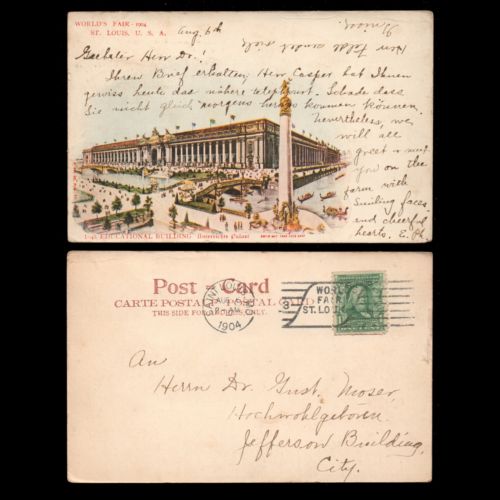 WORLD'S FAIR - 1904
ST. LOUIS, U. S. A.
Aug. 6th
Geehrter Herr Dr.!
Ihren Brief erhalten, Herr Casper hat Ihnen
gewiss heute das nähere telephonirt. Schade dass
Sie nicht gleich morgens heraus kommen können.
Nevertheless, we
will all
greet & meet
you on the
farm with
smiling faces
and cheerful
hearts. E. M.
EDUCATIONAL BUILDING
Post - Card
CARTE POSTALE POSTAL CARD
THIS SIDE FOR ADDRESS ONLY.
SAINT LOUIS
AUG
1904
3
WORLD'S
FAIR
ST. LOUIS
An
Herrn Dr. Gust. Moser,
Hochwohlgeboren.
Jefferson Building,
City.